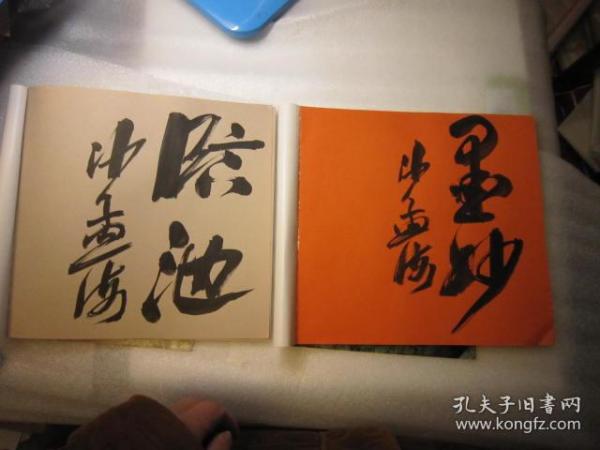 临池
沙孟海
墨妙
沙孟海
孔夫子旧書网
www.kongfz.com